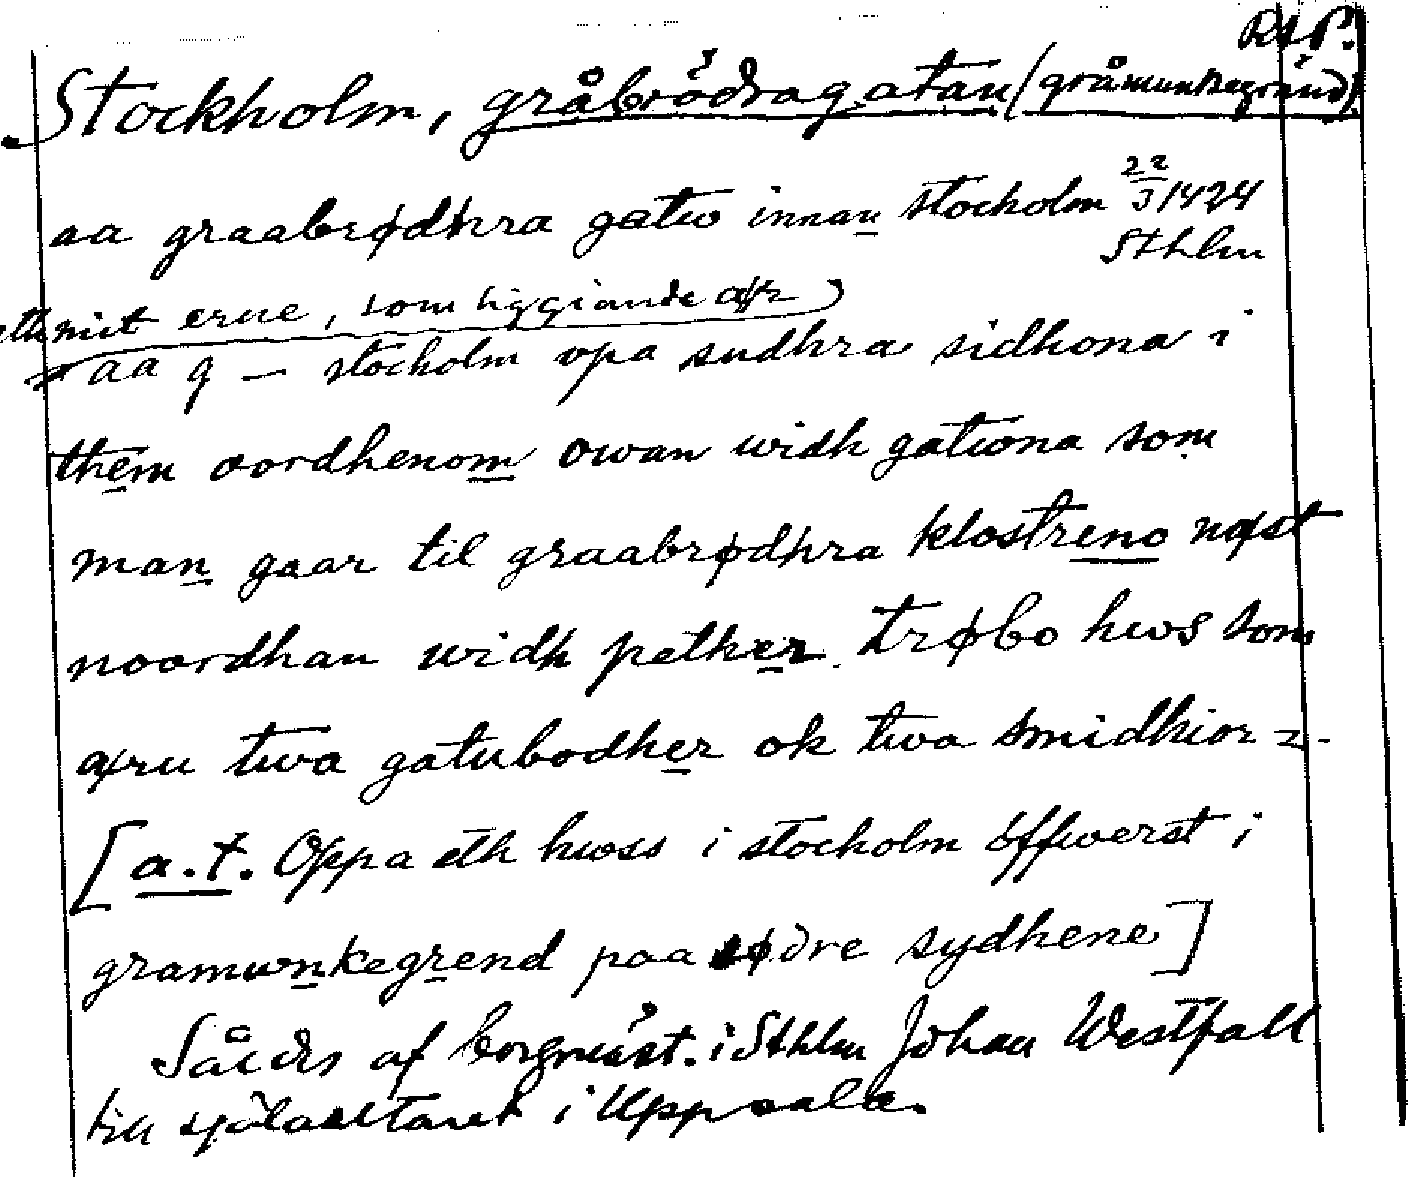 RAP.
Stockholm, gråbrödragatan (gråmunkegränd)
aa graabrødhra gatw innan stocholm 22/3 1424
Sthlm
eth mit erue, som liggiande ær
aa g — stocholm vpa sudhra sidhona i
them oordhenom owan widh gatwna som
man gaar til graabrødhra klostreno næst
noordhan widh pether Trøbo hws som
æru twa gatubodher ok twa smidhior -
[a.t. Oppa eth hwss i stocholm offwerst i
gramwnkegrend paa sødre sydhene]
Såldes af borgmäst. i Sthlm Johan Westfall
till själaaltaret i Uppsala.